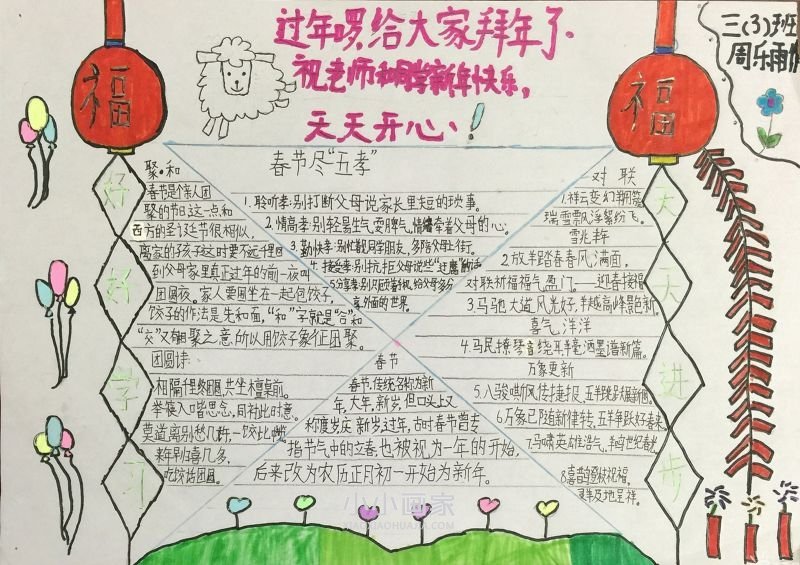 过年啰,给大家拜年了
祝老师和同学新年快乐,
天天开心!
三(3)班
周乐雨作
福
福
好好学习
天天进步
聚·和
春节是个亲人团
聚的节日,这一点和
西方的圣诞节很相似,
离家的孩子这时要不远千里回
到父母家里真正过年的前一夜叫
团圆夜。家人要围坐在一起包饺子,
饺子的作法是先和面,“和”字就是“合”和
“交”又有相聚之意,所以用饺子象征团聚。
团圆诗:
相隔千里终团圆,共坐檀桌前。
举筷入口皆思念,同衬此时意。
莫道离别愁几许,一饺比
来年归喜几多,
吃饺话团圆。
春节尽“五孝”
1.聆听孝:别打断父母说家长里短的琐事。
2.情商孝:别轻易生气,耍脾气,情绪牵着父母的心。
3.勤快孝:别忙觐同学朋友,多陪父母上街。
4.接受孝:别抗拒父母说些“过瘾”的话
5.分享孝:别只顾看手机,给父母多分
享外面的世界。
对联
1.祥云变幻翔
瑞雪飘浮繁纷飞。
雪兆丰年
2.放羊踏春春风满面,
对联祈福福气盈门。 迎春接福
3.马驰大道风光好,羊越高峰景色新。
喜气洋洋
4.马民撩琴音绕耳,羊毫洒墨谱新篇。
万象更新
5.八骏嘶风传捷报,五羊跳跃展新图。
6.万象已随新律转,五羊争跃好春来。
7.马啸英雄浩气,羊鸣世纪春光
8.喜鹊登枝祝福,
羊及地呈祥。
春节
春节,传统名称为新
年,大年,新岁,但口头上又
称度岁庆新岁,过年,古时春节曾专
指节气中的立春也被视为一年的开始,
后来改为农历正月初一开始为新年。
小小画家
XIAOXIAOHUAJIA.COM